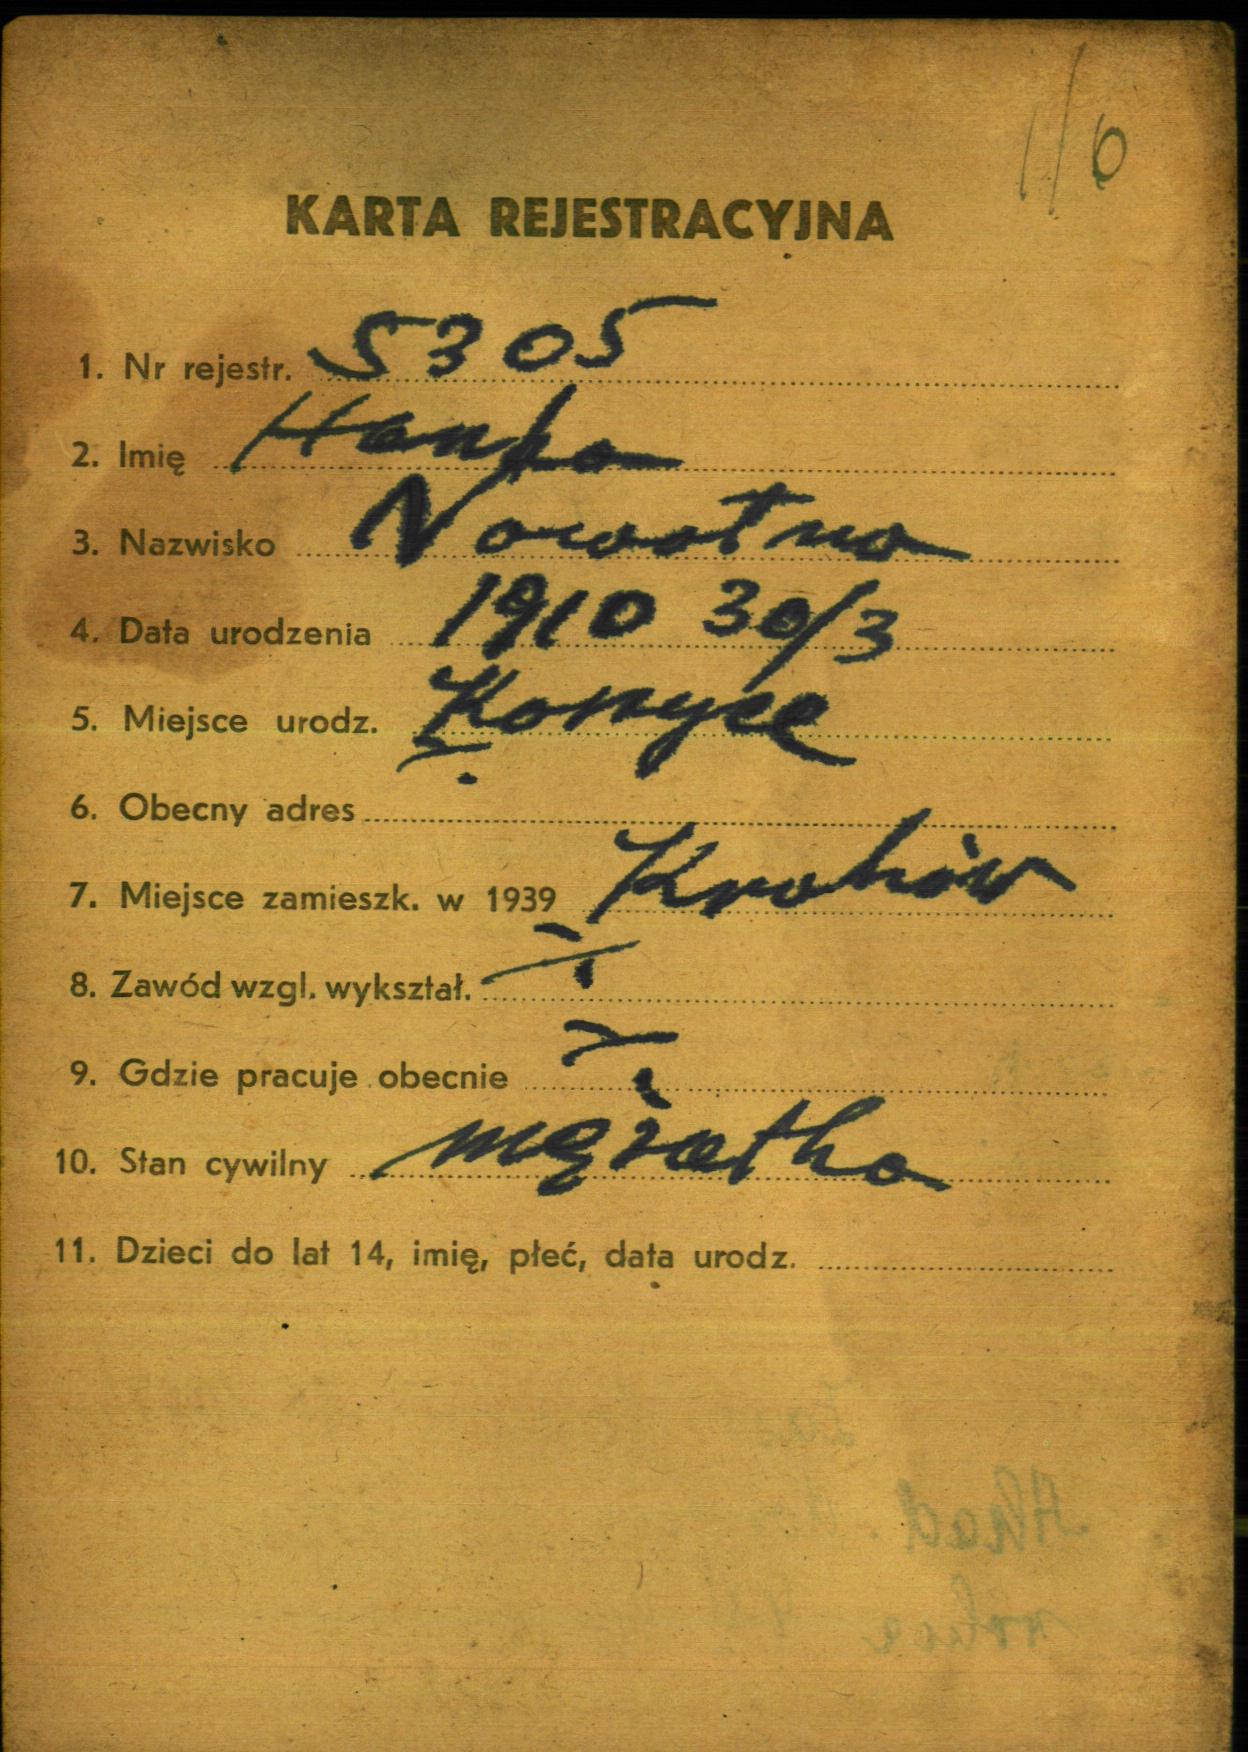 1/6
KARTA REJESTRACYJNA
1. Nr rejestr. 5305
2. Imię Hanka
3. Nazwisko Nowotna
4. Data urodzenia 1910 30/3
5. Miejsce urodz.
6. Obecny adres
7. Miejsce zamieszk. w 1939 Kraków
8. Zawód wzgl. wykształ.
9. Gdzie pracuje obecnie
10. Stan cywilny mężatka
11. Dzieci do lat 14, imię, płeć, data urodz.